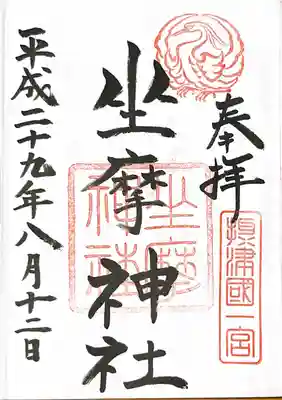 奉拝
摂津國一宮
坐摩神社
坐摩
神社
平成二十九年八月十二日